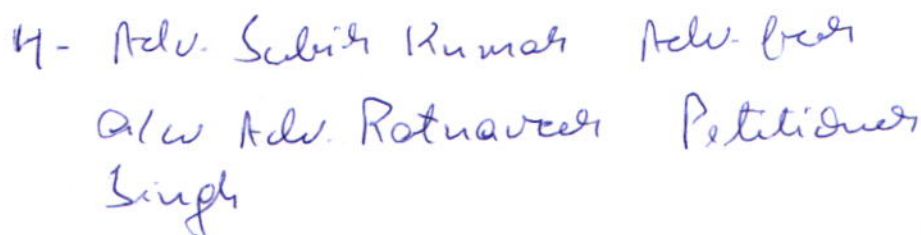 4- Adv. Subir Kumar Adv. for
a/w Adv. Ratnaveer Petitioner
Singh